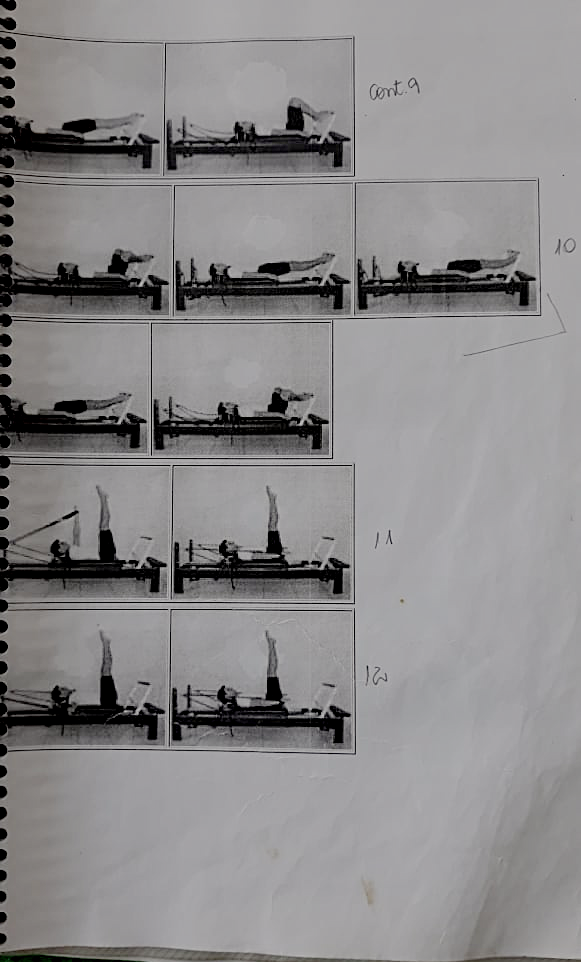 cont. 9
10
11
12